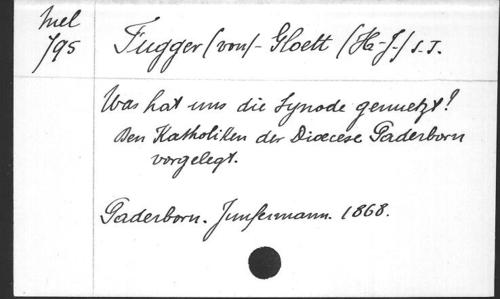 Mel
795
Fugger (von)- Gloett (H-J-) S.J.
Was hat uns die Synode genuetzt?
Den Katholiken der Dioecese Paderborn
vorgelegt.
Paderborn. Junfermann. 1868.